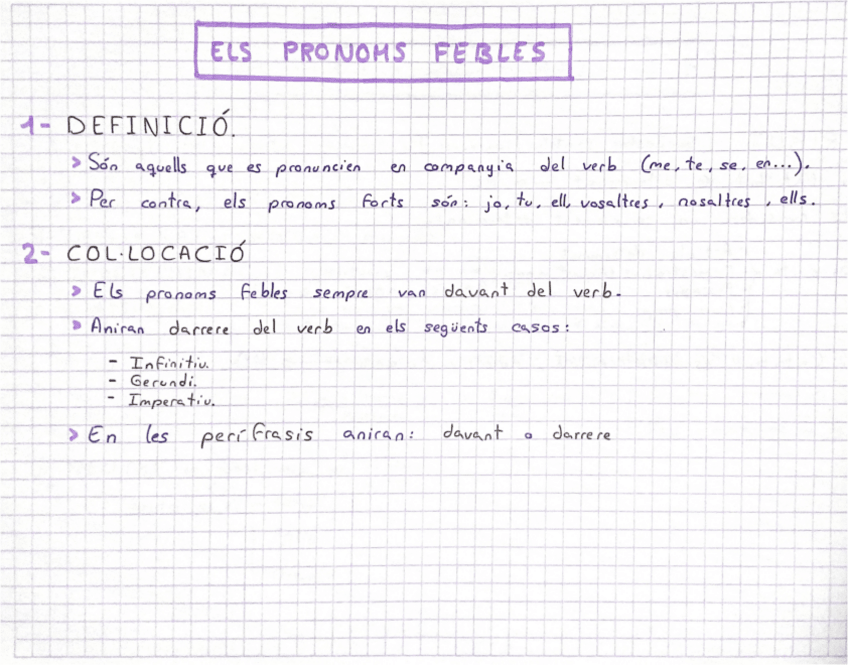 ELS PRONOMS FEBLES
1- DEFINICIÓ.
> Són aquells que es pronuncien en companyia del verb (me, te, se, en...).
> Per contra, els pronoms forts són: jo, tu, ell, vosaltres, nosaltres, ells.
2- COL·LOCACIÓ
> Els pronoms febles sempre van davant del verb.
> Aniran darrere del verb en els següents casos:
- Infinitiu.
- Gerundi.
- Imperatiu.
> En les perífrasis aniran: davant o darrere